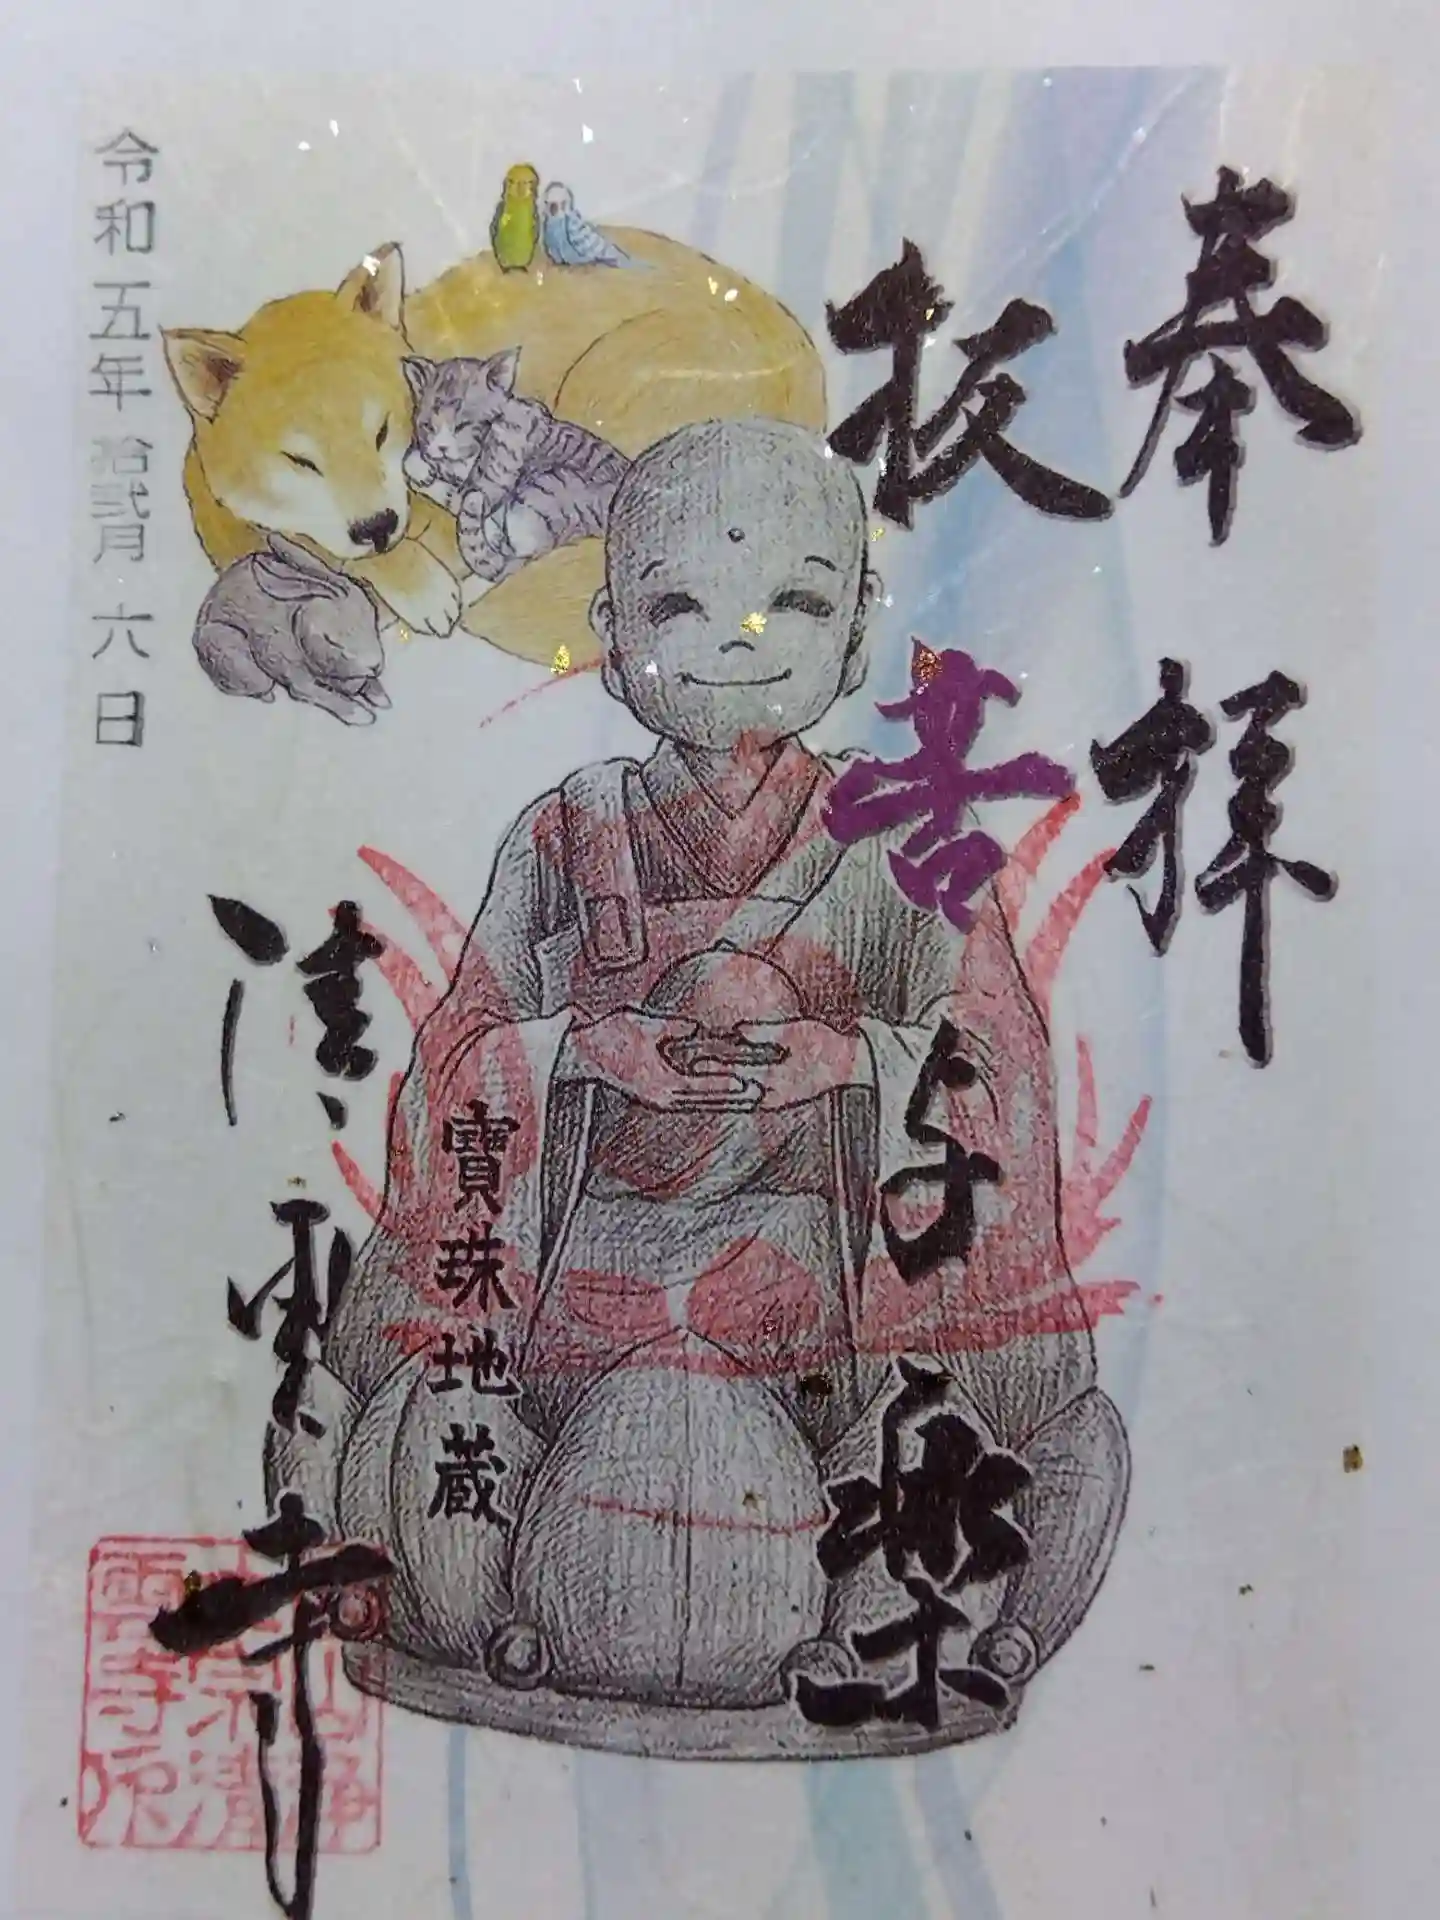 奉拝
抜苦与楽
寶珠地蔵
清雲寺
令和五年拾弐月六日